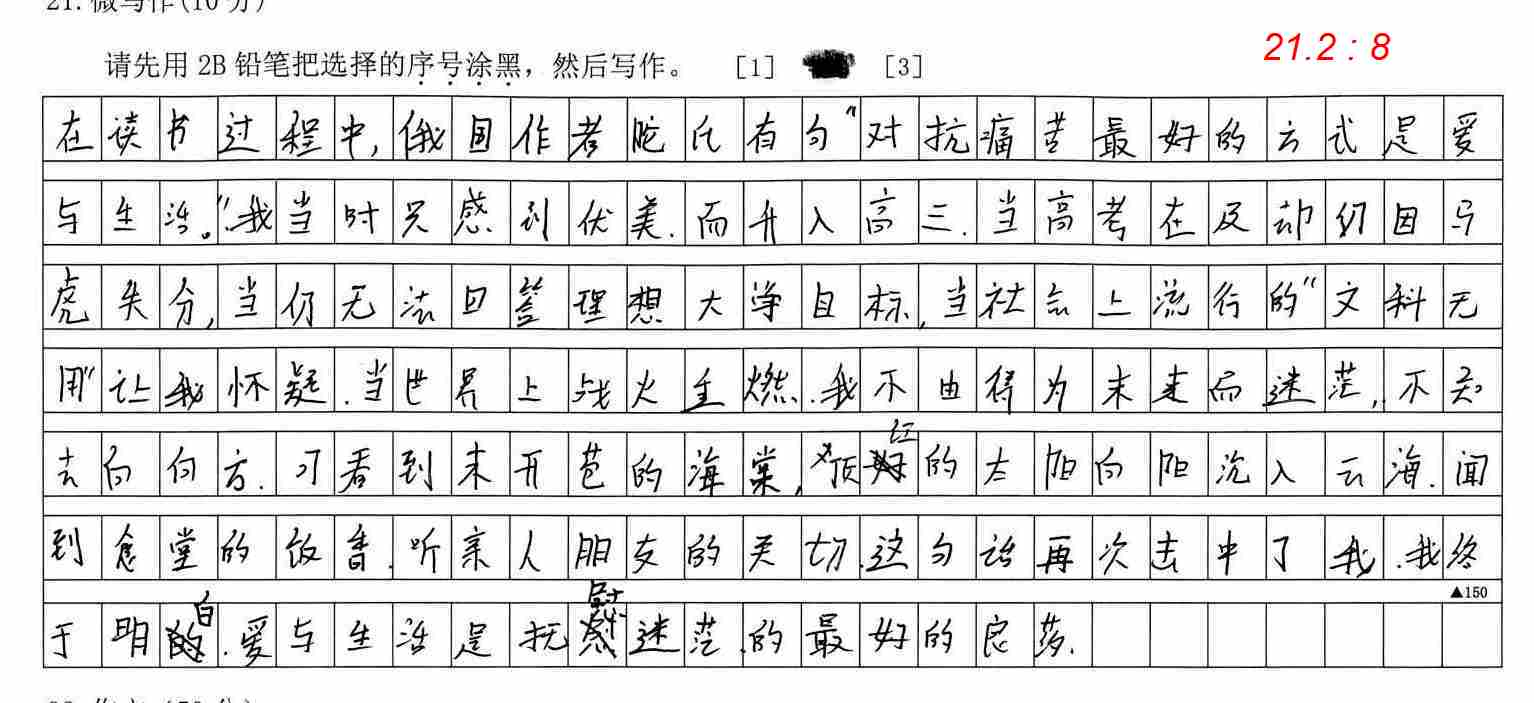 21. 微写作(10分)
请先用 2B 铅笔把选择的序号涂黑，然后写作。 [1] [3]
21.2 : 8
在读书过程中,俄国作者陀氏有句“对抗痛苦最好的方式是爱
与生活。”我当时只感到优美.而升入高三.当高考在及却仍因马
虎失分,当仍无法回答理想大学目标,当社会上流行的“文科无
用”让我怀疑.当世界上战火重燃.我不由得为未来而迷茫,不知
去向何方.可看到未开苞的海棠,又顶红的太阳向阳沉入云海.闻
到食堂的饭香.听亲人朋友的关切.这句话再次击中了我.我终
▲150
于明白.爱与生活是抚慰迷茫的最好的良药.